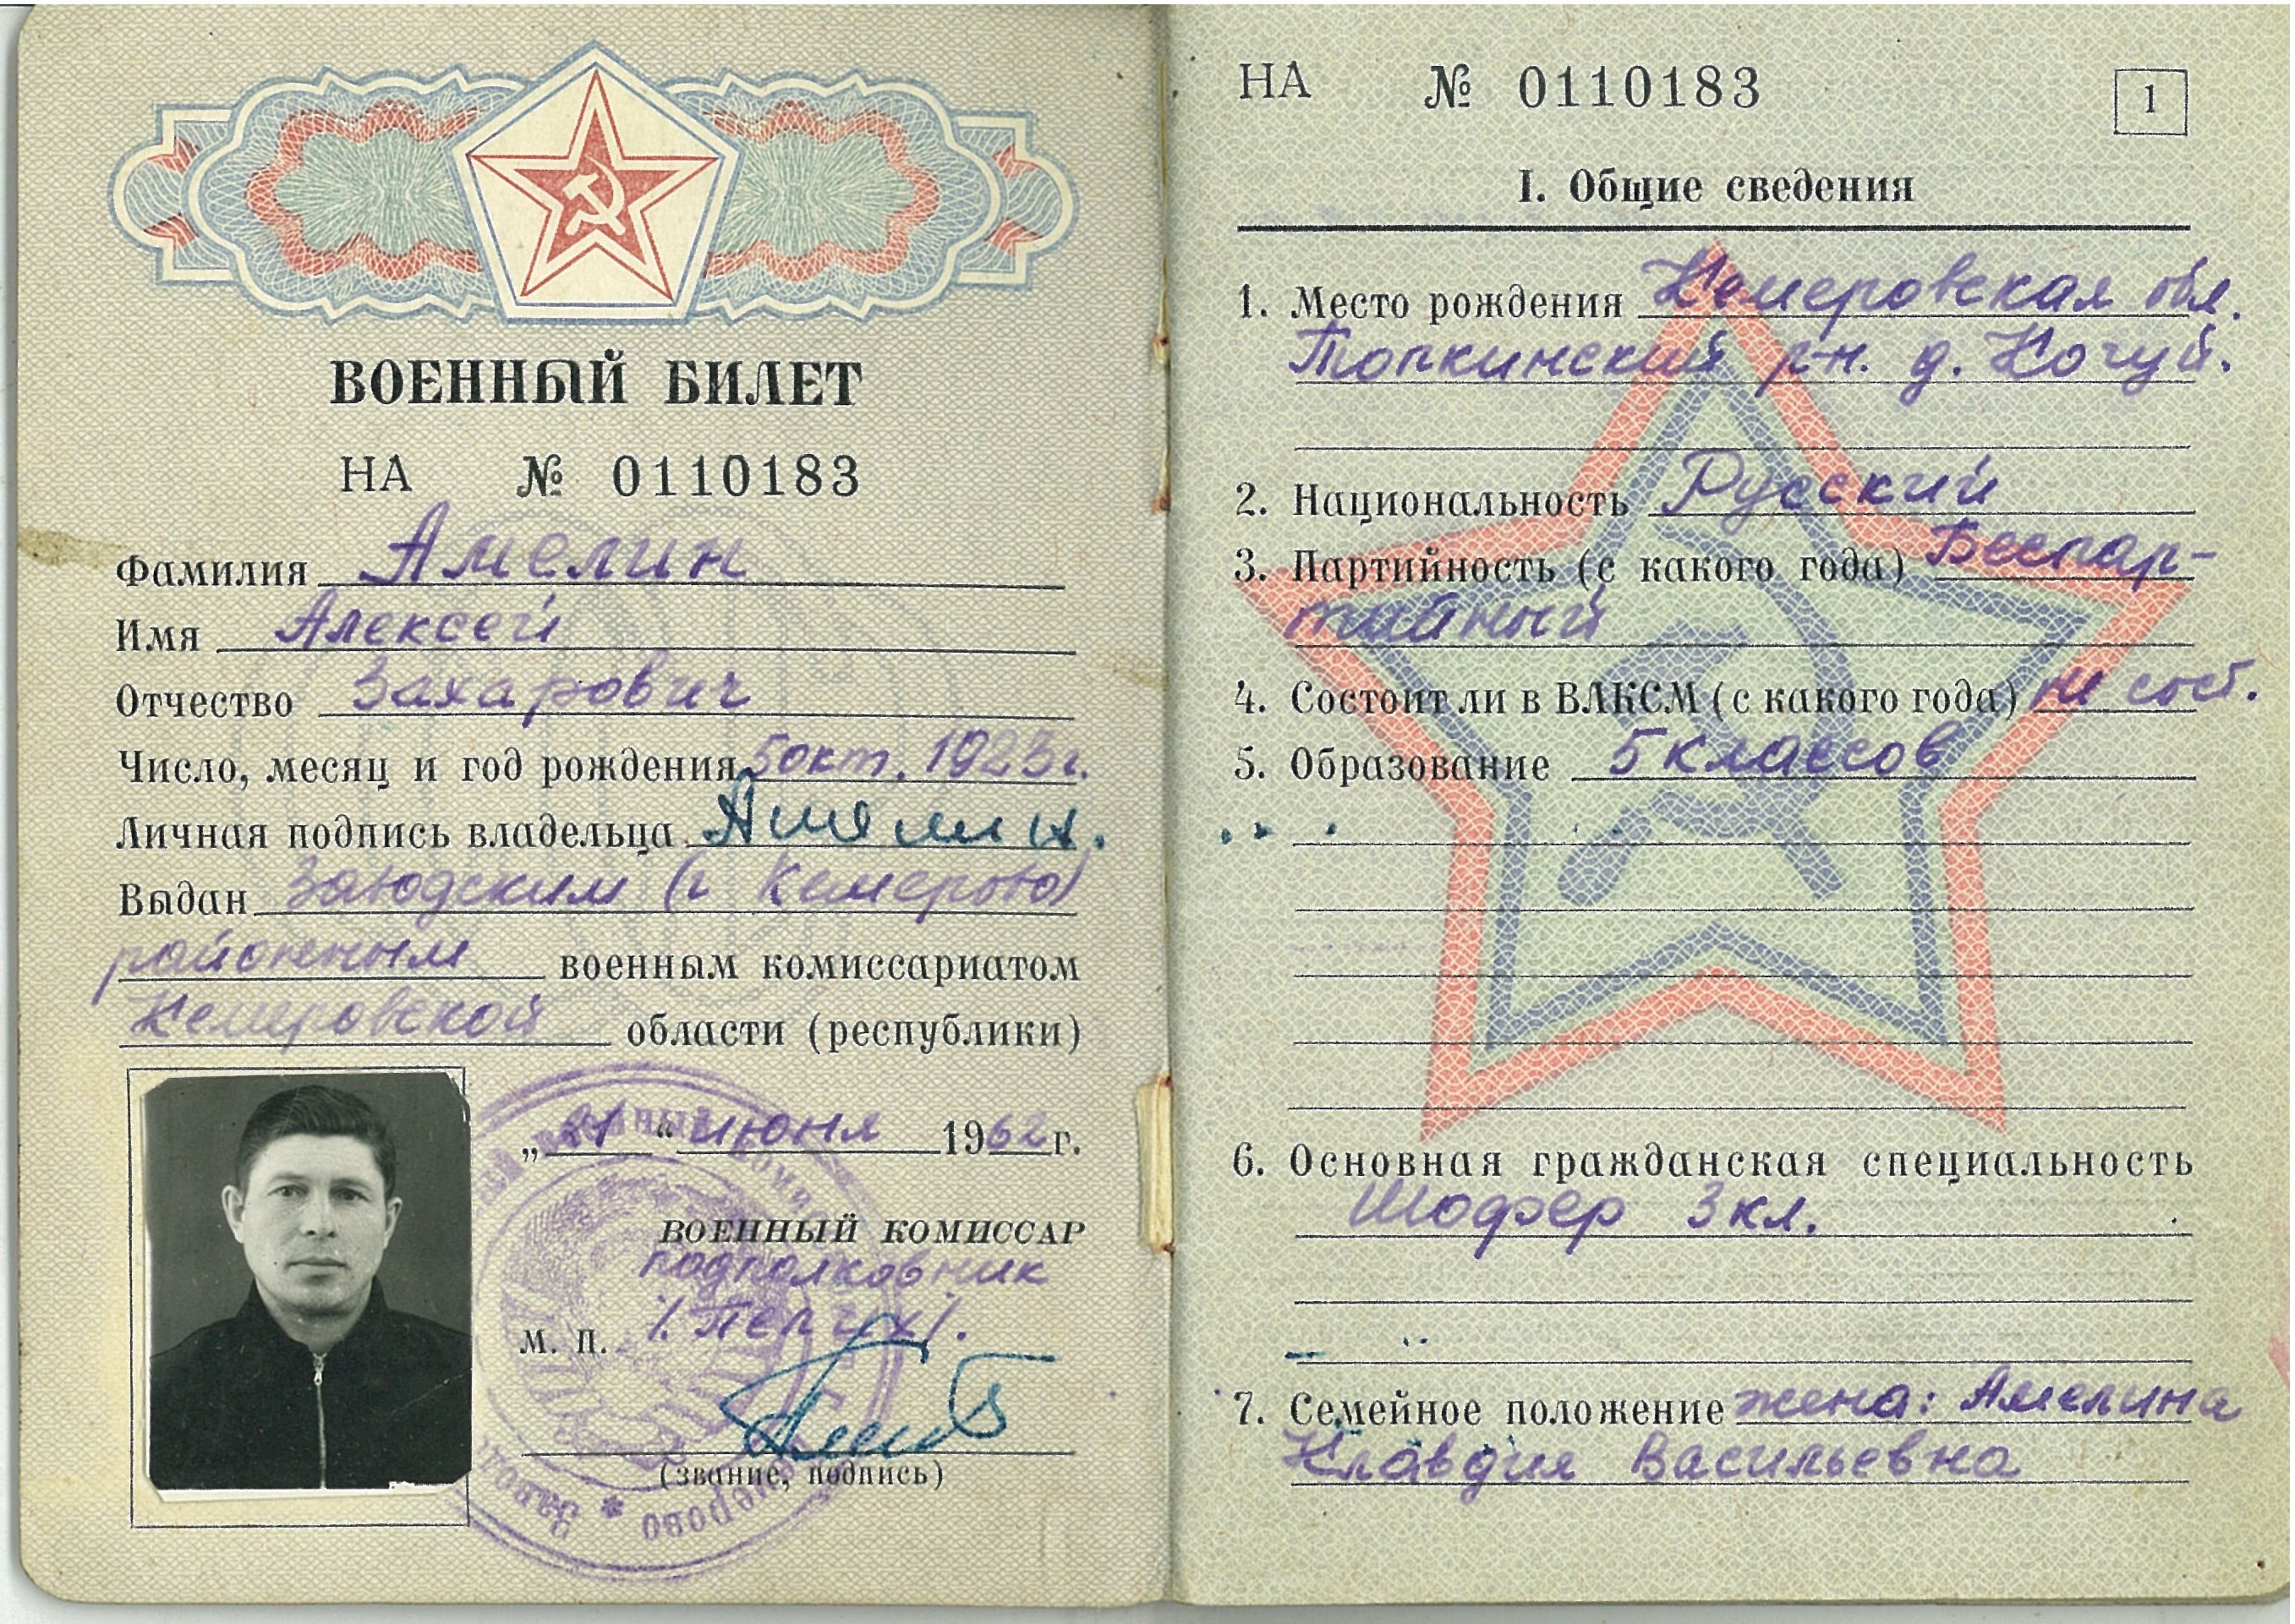 ВОЕННЫЙ БИЛЕТ
НА № 0110183
Фамилия Амелин
Имя Алексей
Отчество Захарович
Число, месяц и год рождения 5 окт. 1923 г.
Личная подпись владельца Амелин.
Выдан Заводским (г Кемерово)
районным военным комиссариатом
Кемеровской области (республики)
„21“ июня 1962 г.
ВОЕННЫЙ КОМИССАР
подполковник
М. П.
(звание, подпись)
НА № 0110183
1
I. Общие сведения
1. Место рождения Кемеровская обл.
Топкинский р-н. д. Кочуй.
2. Национальность Русский
3. Партийность (с какого года) Беспар-
тийный
4. Состоит ли в ВЛКСМ (с какого года) не сост.
5. Образование 5 классов
6. Основная гражданская специальность
Шофер 3 кл.
7. Семейное положение жена: Амелина
Клавдия Васильевна